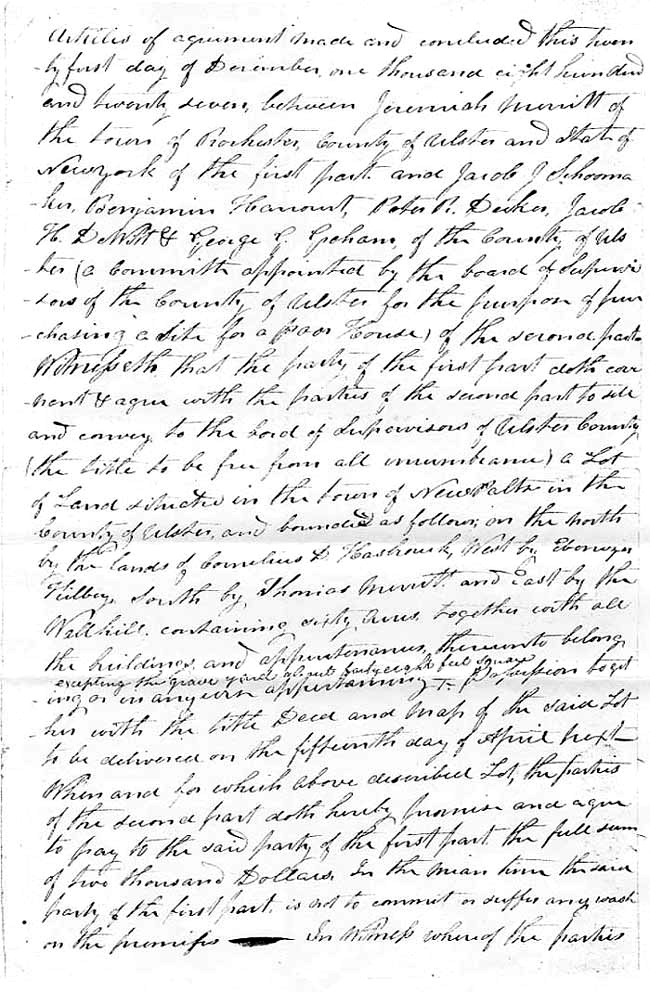 Articles of agriement made and concluded this twen
-ty first day of December, one thousand eight hundred
and twenty seven, between Jeremiah Merritt of
the town of Rochester, County of Ulster and State of
Newyork of the first part and Jacob J. Schoonma
-ker, Benjamin Harcourt, Peter P. Decker, Jacob
H. DeWitt & George G. Graham, of the County of Uls
-ter (a Committee appointed by the board of Supervi
-sors of the County of Ulster for the purpose of pur
-chasing a Site for a Poor House) of the second part
Witnesseth that the party of the first part doth cov
-nent & agree with the parties of the second part to sell
and convey to the bord of Supervisors of Ulster County
(the title to be free from all incumbrance) a Lot
of Land situate in the town of New Paltz in the
County of Ulster, and bounded as follows, on the north
by the lands of Cornelius D. Hasbrouck, West by Ebenezer
Kilbey, South by Thomas Merritt and East by the
Wallkill, containing sixty Acres, together with all
the buildings and appurtenances, thereunto belong
excepting the grave yard about forty eight feet square
-ing or in anywise appertaining + Possession toget
-her with the title Deed and map of the said Lot
to be delivered on the fifteenth day of April next
When and for which above described Lot, the parties
of the second part doth hereby promise and agree
to pay to the said party of the first part the full sum
of two thousand Dollars. In the mian time the said
party of the first part is not to commit or suffer any wast
on the premises In Witness whereof the parties